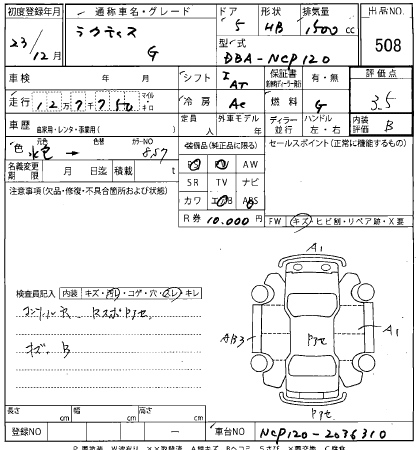 初度登録年月 通称車名・グレード ドア 形状 排気量 出品NO.
23/12月 ラクティス G 5 HB 1500 cc 508
型式 DBA-NCP120
車検 年 月 シフト IAT 保証書 有・無 評価点
走行 127750 マイル キロ 冷房 AC 燃料 G 3.5
車歴 自家用・レンタ・事業用( ) 定員 人 外車モデル 年 ディーラー 並行 ハンドル 左・右 内装評価 B
色 水色 → 色替 カラーNO 857 装備品(純正品に限る) セールスポイント(正常に機能するもの)
名義変更期限 月 日迄 積載 t PS PW AW
注意事項(欠品・修復・不具合箇所および状態) SR TV ナビ
カワ エアB ABS
R券 10,000円 FW キズ・ヒビ割・リペア跡・X要
A1
検査員記入 内装 キズ・汚レ・コゲ・穴・スレ・キレ
AB3 A1
キズ、B
長さ cm 幅 cm 高さ cm
登録NO ー 車台NO NCP120-2036310